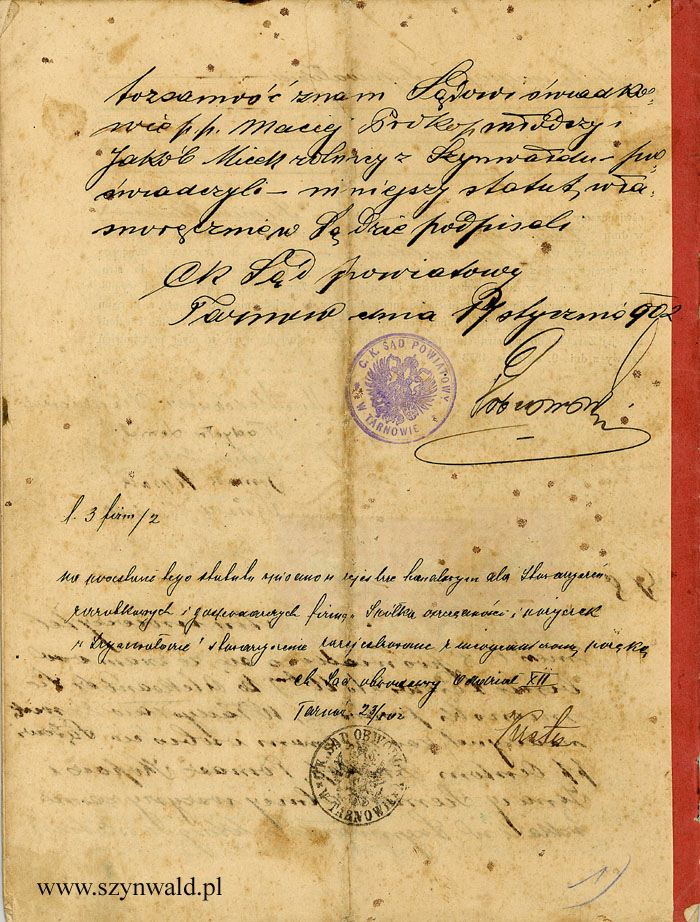 tożsamość znani Sądowi świadko-
wie p.p. Maciej Prokop młodszy i
Jakób Micek rolnicy z Szynwałdu – po
świadczyli – niniejszy statut, wła
snoręcznie w Sądzie podpisali
CK Sąd powiatowy
Tarnow dnia 17 stycznia 902
C. K. SĄD POWIATOWY
W TARNOWIE
l. 3 firm/2
na podstawie tego statutu wpisano w rejestrze handlowym dla Stowarzyszeń
zarobkowych i gospodarczych firmę „Spółka oszczędności i pożyczek
w Szynwałdzie" stowarzyszenie zarejestrowane z nieograniczoną poręką
Ck Sąd obwodowy Oddział XII
Tarnów 23/1 902
C. K. SĄD OBWODOWY
W TARNOWIE
1)
www.szynwald.pl